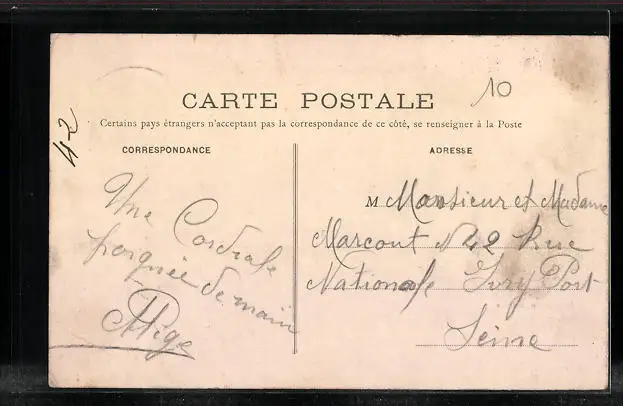 10
CARTE POSTALE
Certains pays étrangers n'acceptant pas la correspondance de ce côté, se renseigner à la Poste
42
CORRESPONDANCE
Une Cordiale
poignée de main
ADRESSE
M Monsieur et Madame
Marcout N 42 Rue
Nationale Ivry Port
Seine